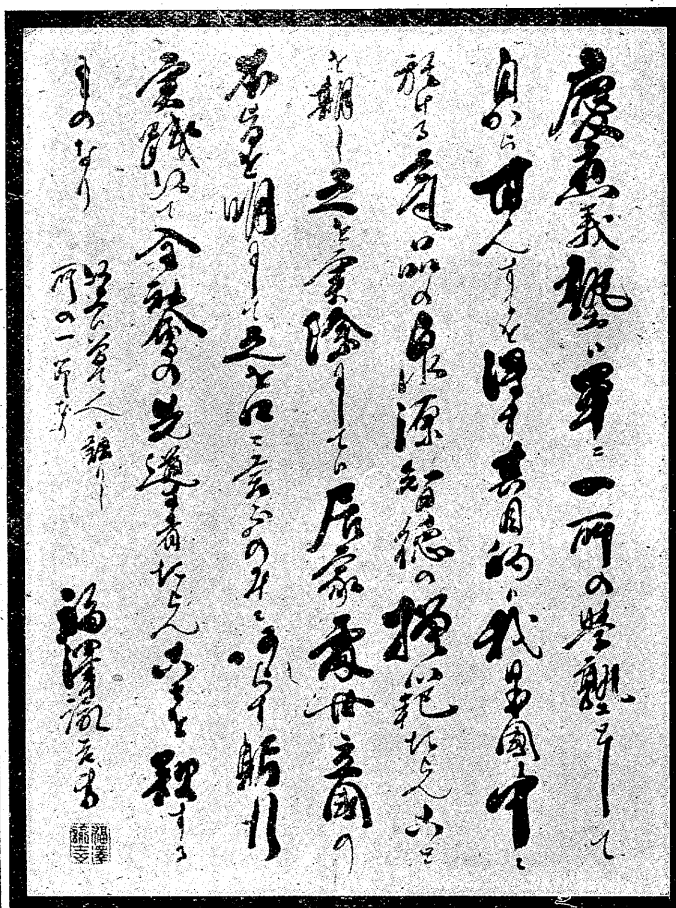 慶應義塾ハ單ニ一所の學塾として
自から甘んするを得す其目的ハ我日本國中ニ
於ける氣品の泉源智德の模範たらんこと
を期し之を實際ニしてハ居家處世立國の
本旨を明ニして之を口ニ言ふのみニあらす躬行
實踐以て全社會の先導者たらんことを欲する
ものなり
以上ハ曾て人ニ語りし
所の一節なり
福澤諭吉書